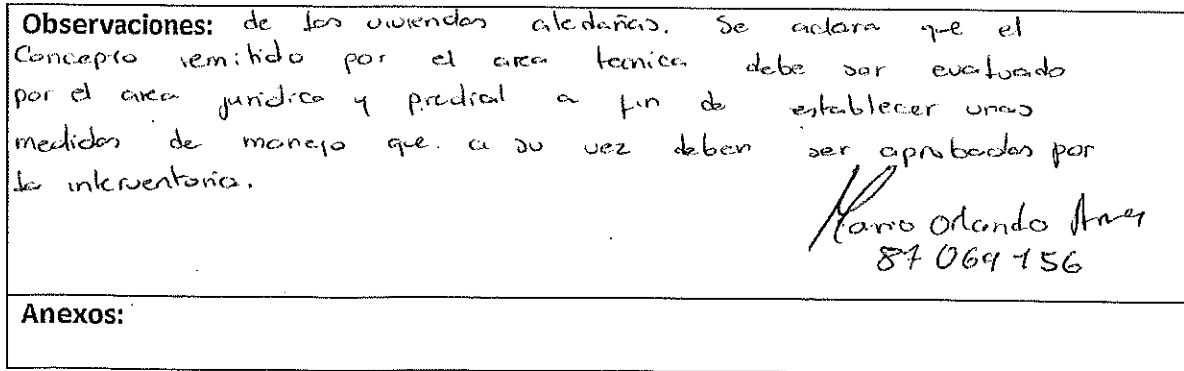 Observaciones: de las viviendas aledañas. Se aclara que el
Concepto remitido por el area tecnica debe ser evaluado
por el area juridica y predial a fin de establecer unas
medidas de manejo que a su vez deben ser aprobadas por
la interventoria.
Mario Orlando
87069156
Anexos: